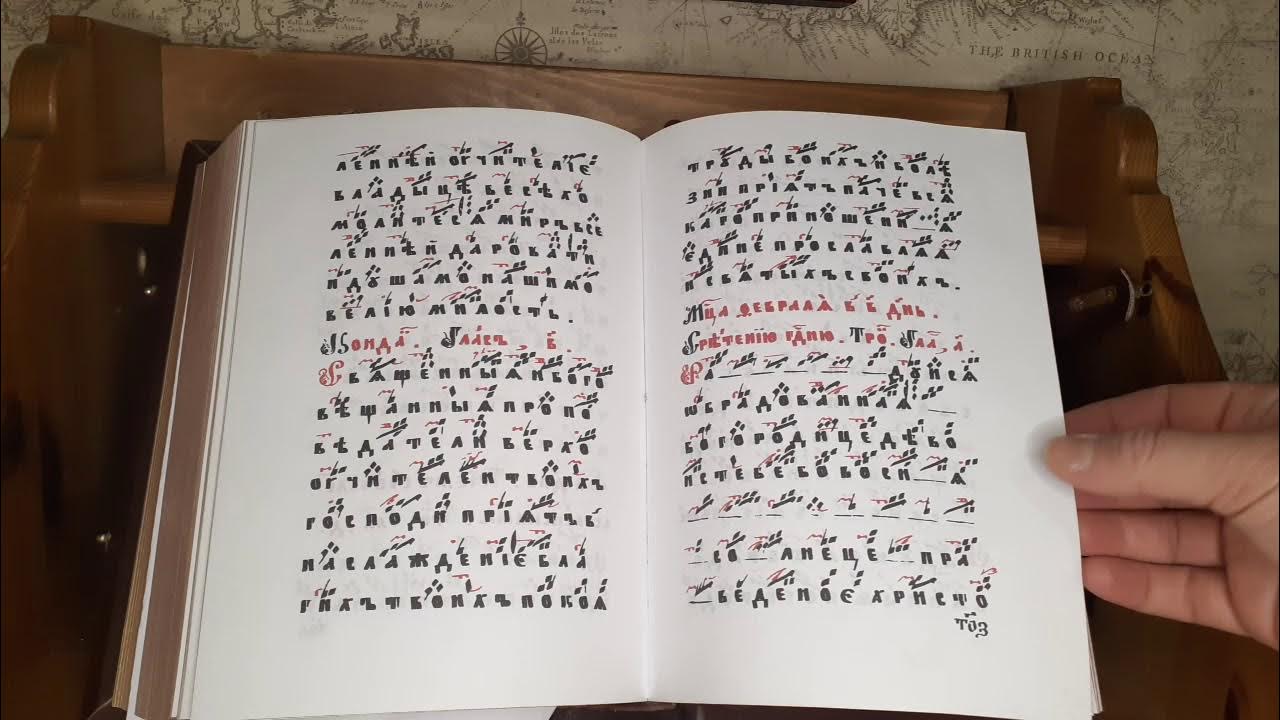 THE BRITISH OCEAN
леннѣй ᲂучителїє
владыцѣ всѣхо
молитеса миръ все
леннѣй даровати
и дꙋшамо нашимо
велїю милость .
Конда́ . Гласъ , в҃ .
Сващенныꙗ и бого
вѣщанныꙗ пропо
вѣдатели верхо
ᲂучители твоихъ
господи прїꙗтъ в
наслажденїє бла
гихъ твоихъ покоꙗ
трꙋды во ихъ и болѣ
зни прїꙗтъ паче вса
каго приношени ꙗ
єдине прославлаꙗ
и сватыхъ своихъ .
Мц҃а февралѧ̀ в҃ в҃ дн҃ь .
Срѣ́тенїю гд҃ню . Тро . Гла , а҃ .
Ра дꙋиса
ѡбрадованнаꙗ
богородице дѣво
ис тебе бо восиꙗ
со лнеце пра
ведено є христо
то҃з